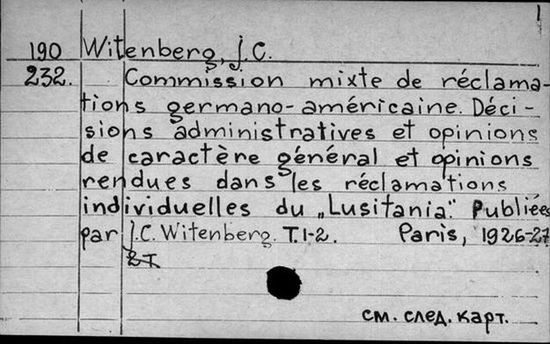 1
190 Witenberg, J.C.
232. Commission mixte de réclama-
tions germano-américaine. Déci-
sions administratives et opinions
de caractère général et opinions
rendues dans les réclamations
individuelles du „Lusitania." Publiées
par J.C. Witenberg. T. 1-2. Paris, 1926-27
2 т
см. след. карт.